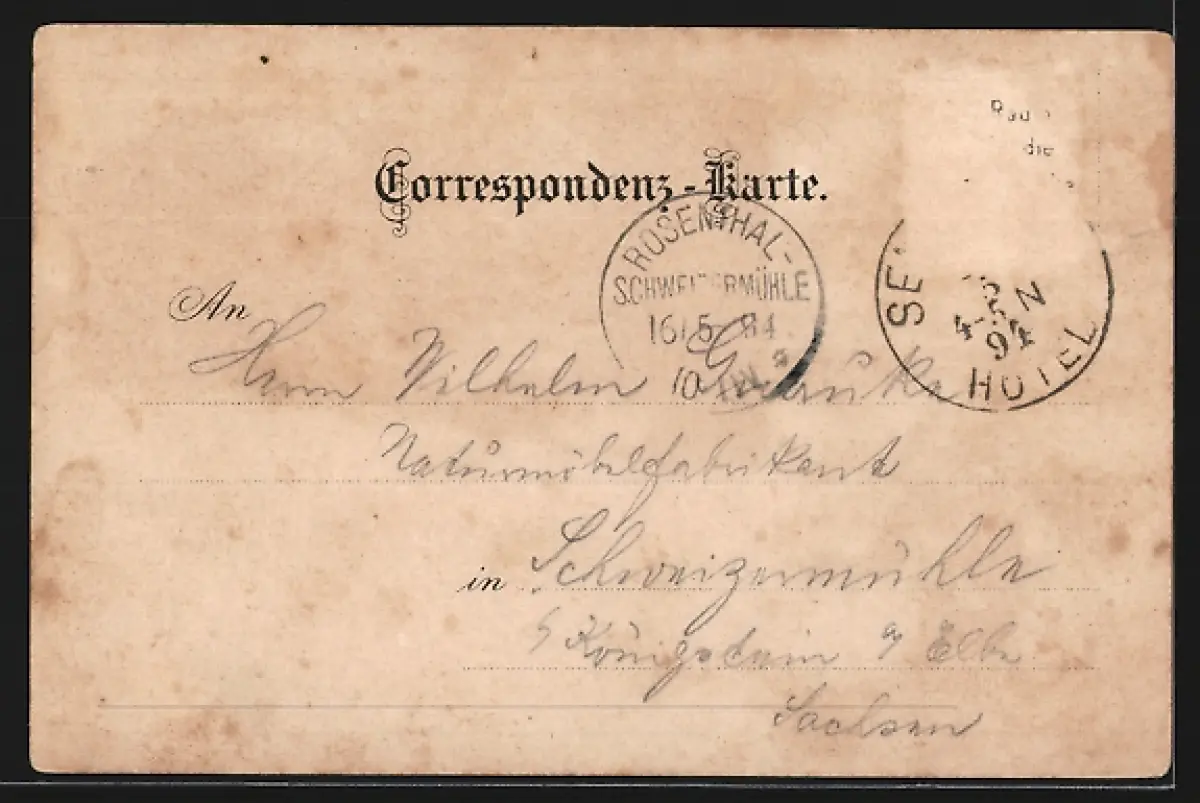 Rau
die
Correspondenz-Karte.
ROSENTHAL-
SCHWEI ERMÜHLE
16/5 94
10
SE
5
4-5 N
94
HOTEL
An
Herrn Wilhelm
Naturmöbelfabrikant
in Schweizermühle
Königstein a/ Elbe
Sachsen